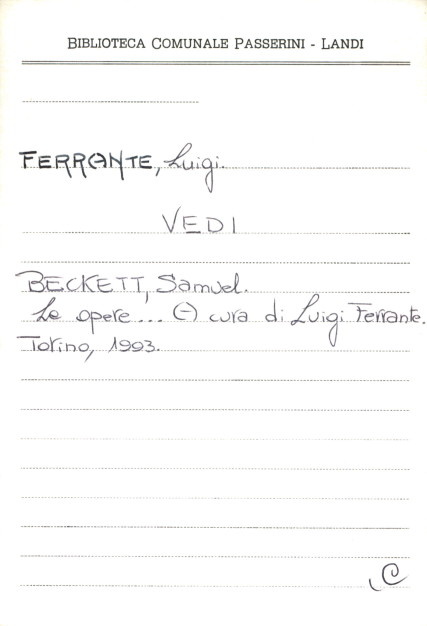 BIBLIOTECA COMUNALE PASSERINI - LANDI
FERRANTE, Luigi.
VEDI
BECKETT, Samuel.
Le opere... (-) cura di Luigi Ferrante.
Torino, 1993.
C